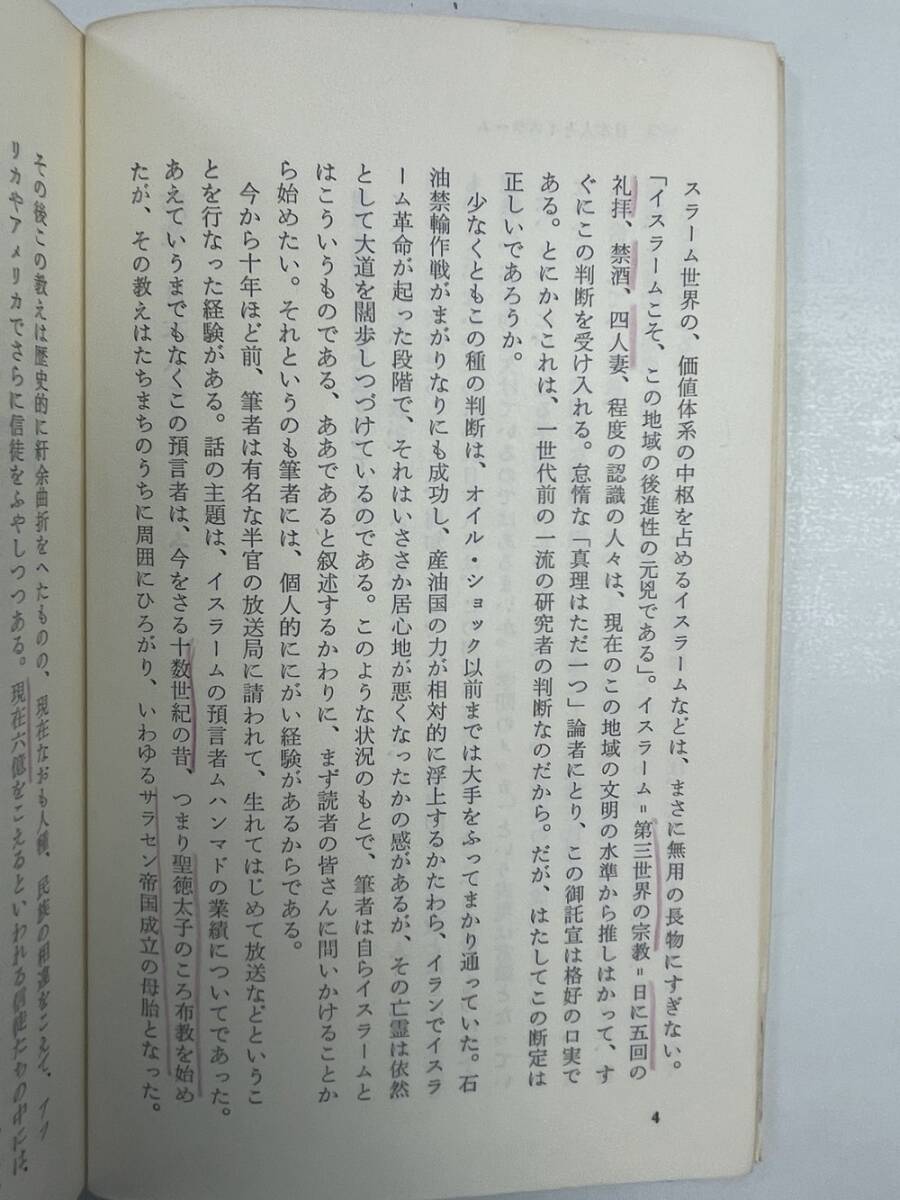 スラーム世界の、価値体系の中枢を占めるイスラームなどは、まさに無用の長物にすぎない。
「イスラームこそ、この地域の後進性の元兇である」。イスラーム＝第三世界の宗教＝日に五回の
礼拝、禁酒、四人妻、程度の認識の人々は、現在のこの地域の文明の水準から推しはかって、す
ぐにこの判断を受け入れる。怠惰な「真理はただ一つ」論者にとり、この御託宣は格好の口実で
ある。とにかくこれは、一世代前の一流の研究者の判断なのだから。だが、はたしてこの断定は
正しいであろうか。
少なくともこの種の判断は、オイル・ショック以前までは大手をふってまかり通っていた。石
油禁輸作戦がまがりなりにも成功し、産油国の力が相対的に浮上するかたわら、イランでイスラ
ーム革命が起った段階で、それはいささか居心地が悪くなったかの感があるが、その亡霊は依然
として大道を闊歩しつづけているのである。このような状況のもとで、筆者は自らイスラームと
はこういうものである、ああであると叙述するかわりに、まず読者の皆さんに問いかけることか
ら始めたい。それというのも筆者には、個人的ににがい経験があるからである。
今から十年ほど前、筆者は有名な半官の放送局に請われて、生れてはじめて放送などというこ
とを行なった経験がある。話の主題は、イスラームの預言者ムハンマドの業績についてであった。
あえていうまでもなくこの預言者は、今をさる十数世紀の昔、つまり聖徳太子のころ布教を始め
たが、その教えはたちまちのうちに周囲にひろがり、いわゆるサラセン帝国成立の母胎となった。
その後この教えは歴史的に紆余曲折をへたものの、現在なおも人種、民族の相違をこえて、アフ
リカやアメリカでさらに信徒をふやしつつある。現在六億をこえるといわれる信徒たちの中には、
4